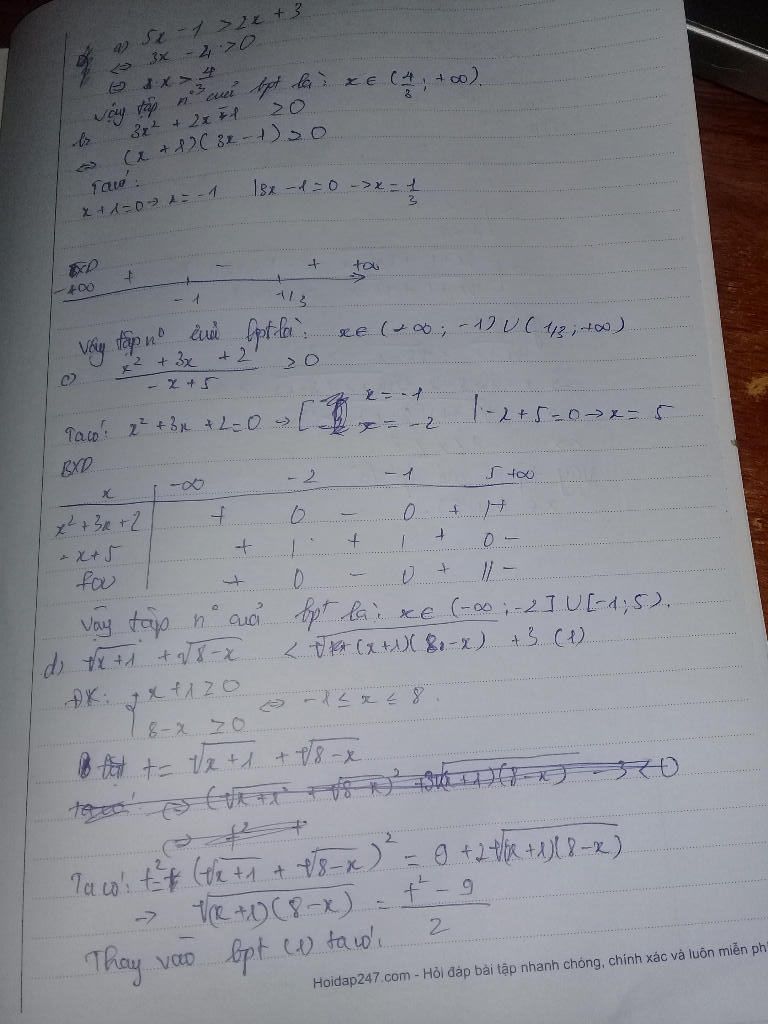 a) 5x - 1 > 2x + 3
⇔ 3x - 4 > 0
⇔ x > 4/3
Vậy tập n° cuả bpt là: x ∈ (4/3 ; +∞).
b) 3x² + 2x - 1 ≥ 0
⇔ (x + 1)(3x - 1) ≥ 0
Ta có:
x + 1 = 0 → x = -1 | 3x - 1 = 0 -> x = 1/3
BXD
-∞ + - + +∞
-1 1/3
Vậy tập n° cuả bpt là: x ∈ (-∞ ; -1) ∪ (1/3 ; +∞)
c) (x² + 3x + 2)/(-x + 5) ≥ 0
Ta có: x² + 3x + 2 = 0 → [ x = -1
x = -2 | -x + 5 = 0 → x = 5
BXD
x -∞ -2 -1 5 +∞
x² + 3x + 2 + 0 - 0 + | +
- x + 5 + | + | + 0 -
f(x) + 0 - 0 + || -
Vậy tập n° cuả bpt là: x ∈ (-∞ ; -2] ∪ [-1 ; 5).
d) √(x+1) + √(8-x) < √((x+1)(8-x)) + 3 (1)
ĐK: { x + 1 ≥ 0
8 - x ≥ 0 ⇔ -1 ≤ x ≤ 8.
t = √(x+1) + √(8-x)
Ta có: t² = (√(x+1) + √(8-x))² = 9 + 2√((x+1)(8-x))
→ √((x+1)(8-x)) = (t² - 9)/2
Thay vào bpt (1) ta có:
Hoidap247.com - Hỏi đáp bài tập nhanh chóng, chính xác và luôn miễn ph